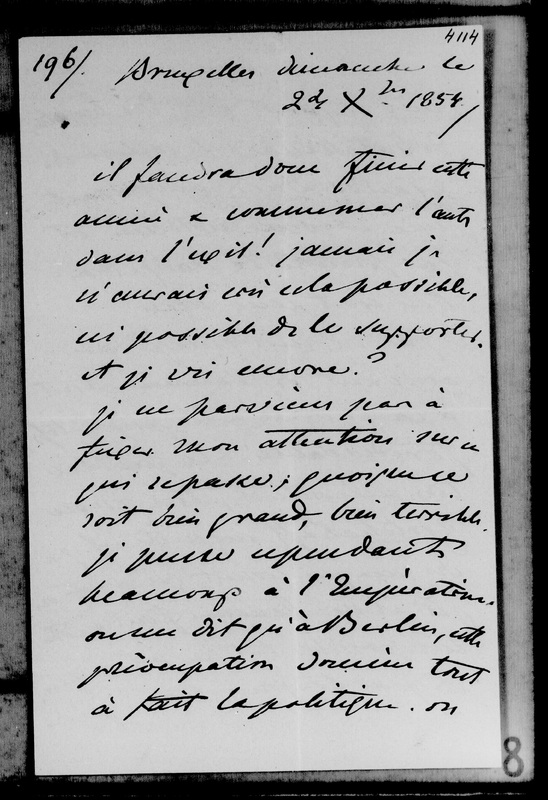 4114
196/. Bruxelles dimanche le
24 Xbre 1854/
il faudra donc finir cette
année & commencer l'autre
dans l'exil! jamais je
n'aurais cru cela possible,
ni possible de le supporter.
et je vis encore?
je ne parviens pas à
fixer mon attention sur ce
qui se passe; quoique ce
soit bien grand, bien terrible.
je pense cependant
beaucoup à l'Impératrice.
on me dit qu'à Berlin, cette
préoccupation domine tout
à fait la politique. on
8